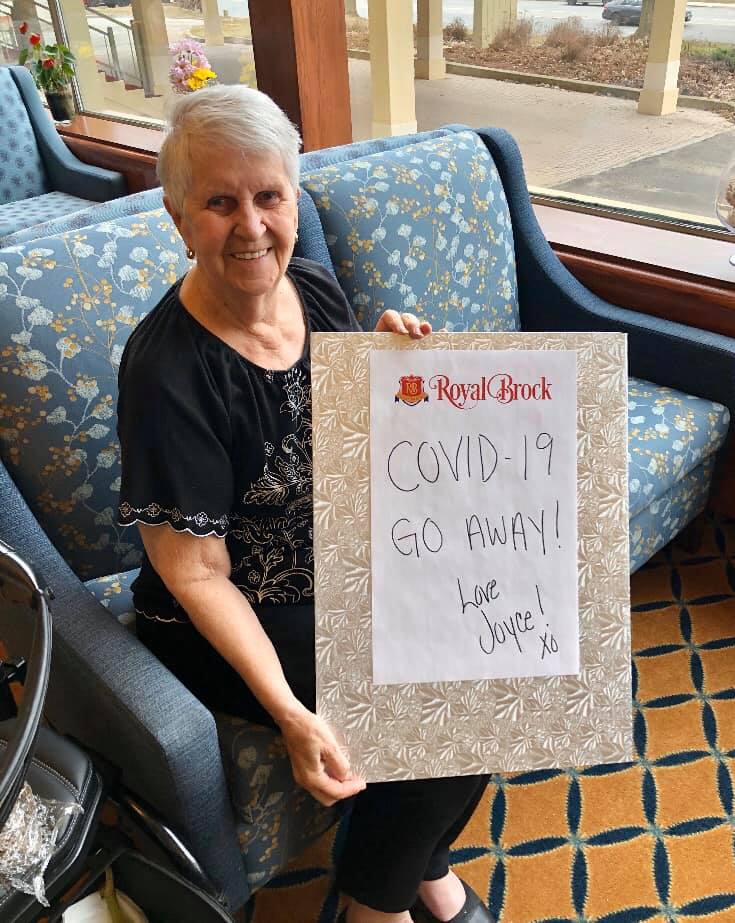 RB Royal Brock
COVID-19
GO AWAY!
Love
Joyce!
xo